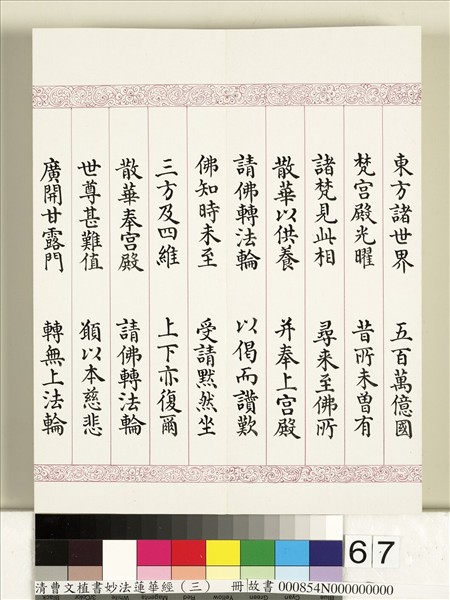 東方諸世界　五百萬億國
梵宮殿光曜　昔所未曾有
諸梵見此相　尋来至佛所
散華以供養　并奉上宮殿
請佛轉法輪　以偈而讚歎
佛知時未至　受請默然坐
三方及四維　上下亦復爾
散華奉宮殿　請佛轉法輪
世尊甚難值　願以本慈悲
廣開甘露門　轉無上法輪
67
清曹文植書妙法蓮華經（三）　冊　故書 000854N000000000